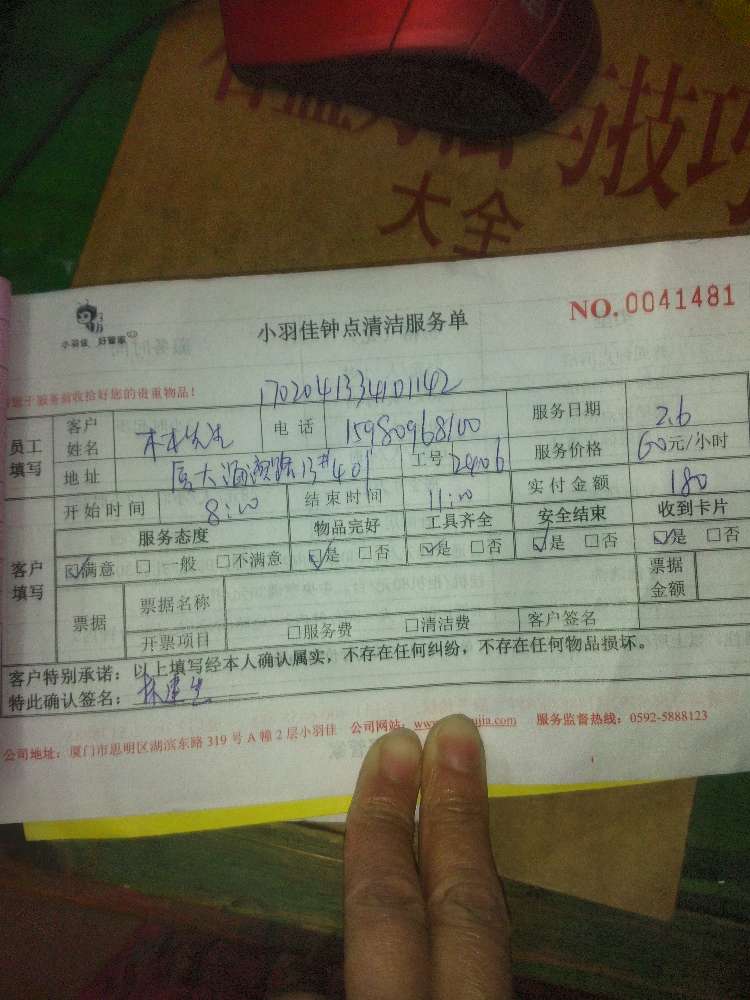 大全
小羽佳 好管家
小羽佳钟点清洁服务单
NO. 0041481
1702041334101142
员工填写 客户姓名 林先生 电话 15980968100 服务日期 2.6
地址 工号 24006 服务价格 60元/小时
开始时间 8:00 结束时间 11:00 实付金额 180
客户填写 服务态度 物品完好 工具齐全 安全结束 收到卡片
☑满意 □一般 □不满意 ☑是 □否 ☑是 □否 ☑是 □否 ☑是 □否
票据 票据名称 票据金额
开票项目 □服务费 □清洁费 客户签名
客户特别承诺：以上填写经本人确认属实，不存在任何纠纷，不存在任何物品损坏。
特此确认签名：
公司地址：厦门市思明区湖滨东路 319 号 A 幢 2 层小羽佳 公司网站： 服务监督热线：0592-5888123